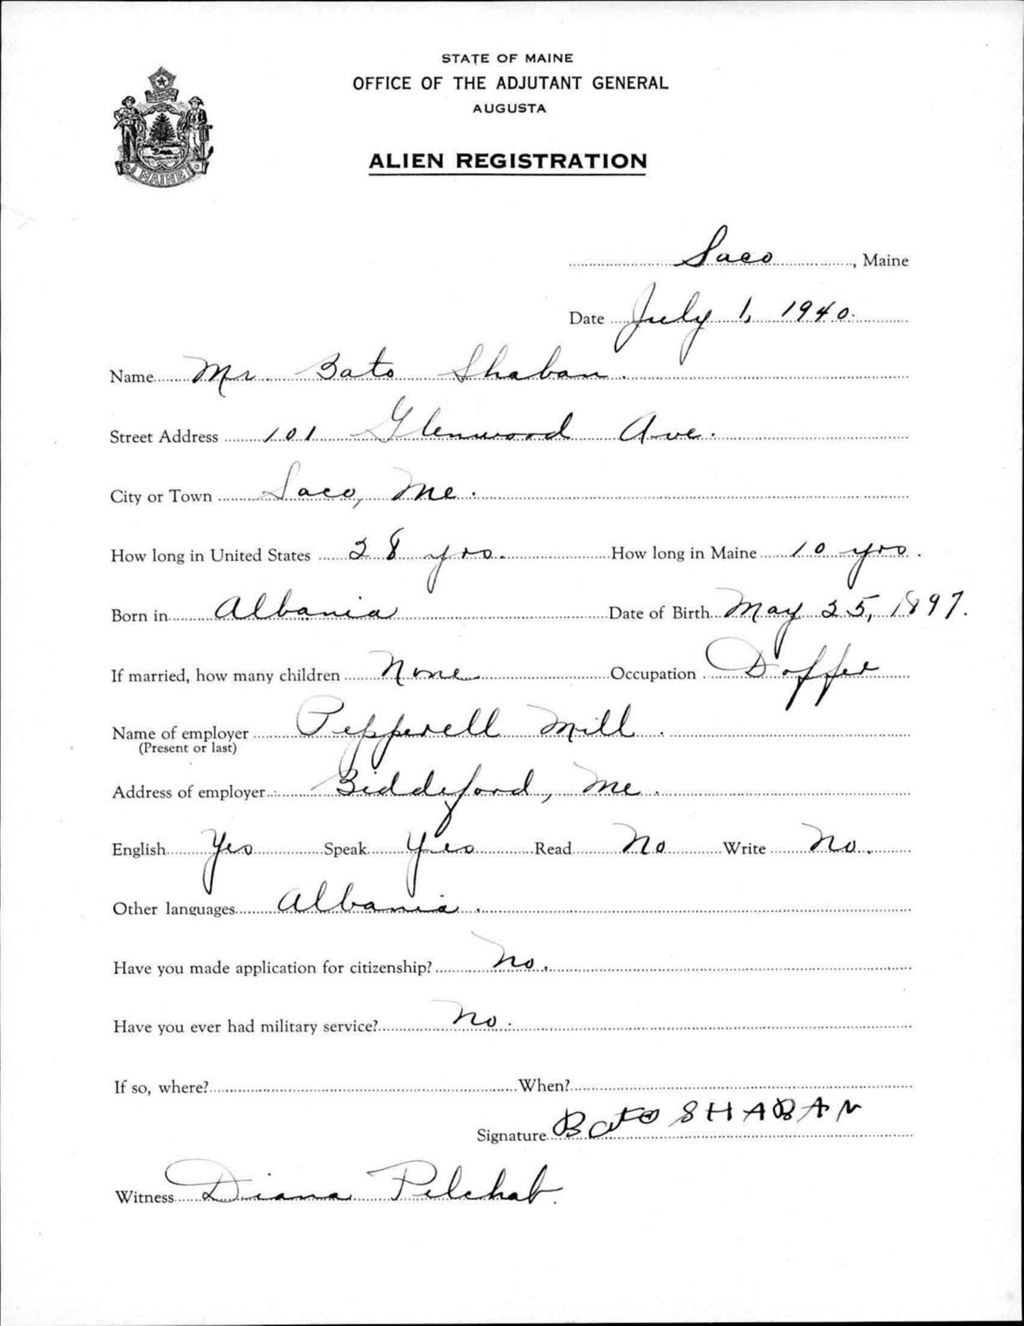 STATE OF MAINE
OFFICE OF THE ADJUTANT GENERAL
AUGUSTA
ALIEN REGISTRATION
MAINE
Saco, Maine
Date July 1, 1940.
Name Mr. Bato Shaban.
Street Address 101 Glenwood Ave.
City or Town Saco, Me.
How long in United States 28 yrs. How long in Maine 10 yrs.
Born in Albania Date of Birth May 25, 1897.
If married, how many children None Occupation Doffer
Name of employer Pepperell Mill.
(Present or last)
Address of employer Biddeford, Me.
English Yes Speak Yes Read No Write No.
Other languages Albania.
Have you made application for citizenship? No.
Have you ever had military service? No.
If so, where? When?
Signature Bato SHABAN
Witness Diana Pelchat